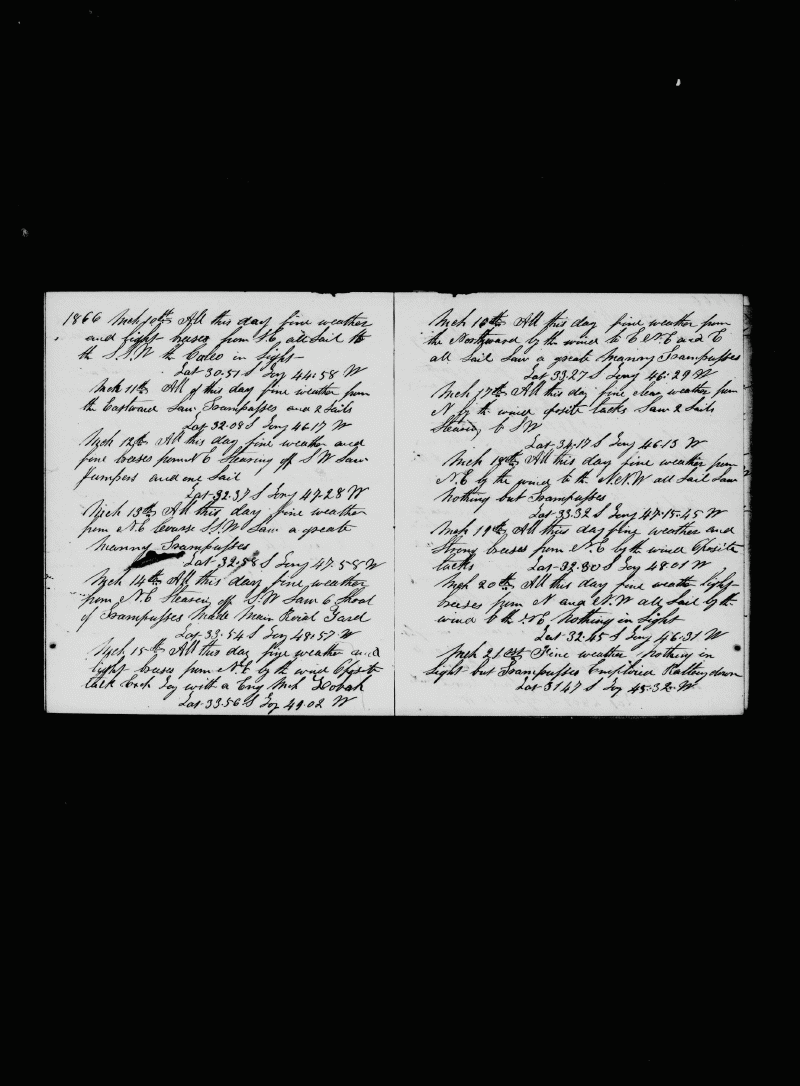 1866 Mch 10th All this day fine weather
and light breeses from S.E. all Sail to
the S.S.W the Caleo in Sight
Lat 30.51 S Long 44.58 W
Mch 11th All of this day fine weather from
the Eastward Saw Grampusses and 2 Sails
Lat 32.08 S Long 46.17 W
Mch 12th All this day fine weather and
fine breeses from N E Stearing off S W Saw
Jumpers and one Sail
Lat 32.37 S Long 47.28 W
Mch 13th All this day fine weather
from N.E Course S.S.W Saw a greate
meanny Grampusses
Lat 32.58 S Long 47.58 W
Mch 14th All this day fine weather
from N.E Stearin off S.W Saw 6 Shoal
of Grampusses Made Main Roial Yard
Lat 33.54 S Long 48.57 W
Mch 15th All this day fine weather and
light breeses from N.E by the wind Oposite
tack with a Eng
Lat 33.56 S Long 49.02 W
Mch 16th All this day fine weather from
the Northward by the wind to E N.E and E
all Sail Saw a greate meanny Grampusses
Lat 33.27 S Long 46.29 W
Mch 17th All this day fine clear weather from
N by the wind oposite tacks Saw 2 Sails
Stearing to SW
Lat 34.17 S Long 46.13 W
Mch 18th All this day fine weather from
N.E by the wind to the N.N.W all Sail Saw
Nothing but Grampusses
Lat 33.32 S Long 47.15.45 W
Mch 19th All this day fine weather and
Strong breeses from N.E by the wind Oposite
tacks Lat 32.30 S Long 48.01 W
Mch 20th All this day fine weather Light
breeses from N and N.W all Sail by the
wind to the N.E Nothing in Sight
Lat 32.45 S Long 46.31 W
Mch 21st Fine weather nothing in
Sight but Grampusses Emploied Ratteng down
Lat 31.47 S Long 45.32 W